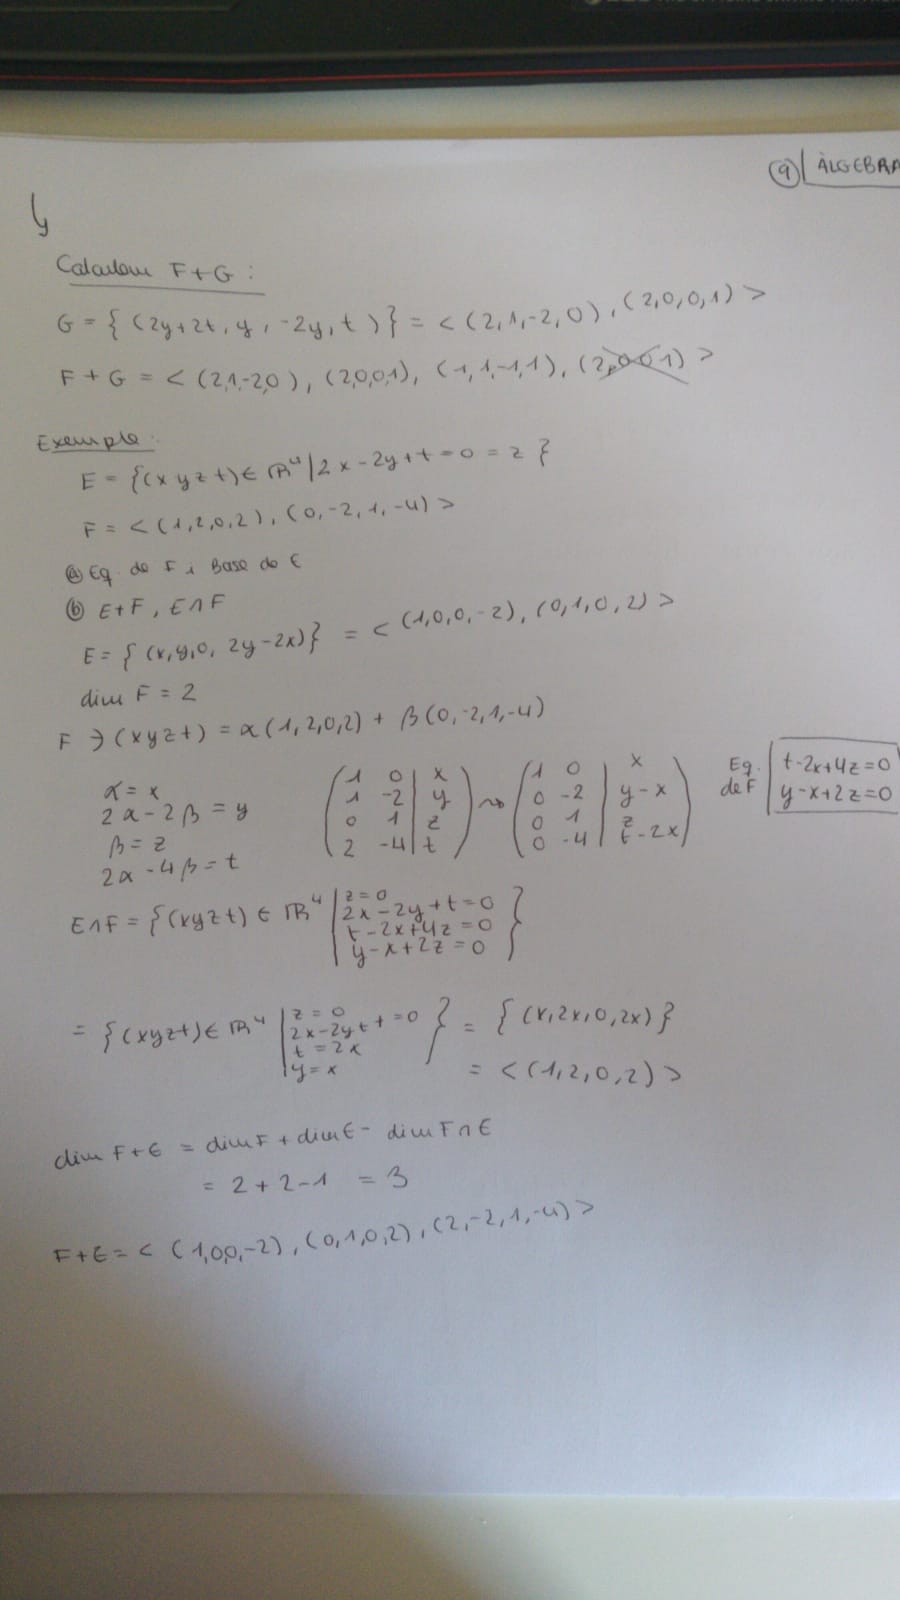 9 | ÀLGEBRA
Calculem F+G :
G = { (2y+2t, y, -2y, t) } = < (2,1,-2,0), (2,0,0,1) >
F + G = < (2,1,-2,0), (2,0,0,1), (-1,1,-1,1), (2,0,0,1) >
Exemple:
E = {(x y z t) ∈ ℝ⁴ | 2x - 2y + t = 0 = z }
F = < (1,2,0,2), (0,-2,1,-4) >
a) Eq. de F i Base de E
b) E+F, E∩F
E = { (x,y,0, 2y-2x)} = < (1,0,0,-2), (0,1,0,2) >
dim F = 2
F ∋ (x y z t) = α(1,2,0,2) + β(0,-2,1,-4)
α = x
2α - 2β = y
β = z
2α - 4β = t
( 1 0 | x
1 -2 | y
0 1 | z
2 -4 | t )
~>
( 1 0 | x
0 -2 | y-x
0 1 | z
0 -4 | t-2x )
Eq. de F
t-2x+4z=0
y-x+2z=0
E∩F = {(xyzt) ∈ ℝ⁴ | z=0
2x-2y+t=0
t-2x+4z=0
y-x+2z=0 }
= {(xyzt) ∈ ℝ⁴ | z=0
2x-2y+t=0
t=2x
y=x } = { (x,2x,0,2x) }
= < (1,2,0,2) >
dim F+E = dim F + dim E - dim F∩E
= 2+2-1 = 3
F+E = < (1,0,0,-2), (0,1,0,2), (2,-2,1,-4) >